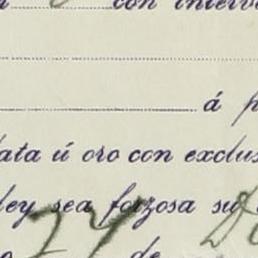 con interv
á p
lata ú oro con exclus
ley sea forzosa su
de